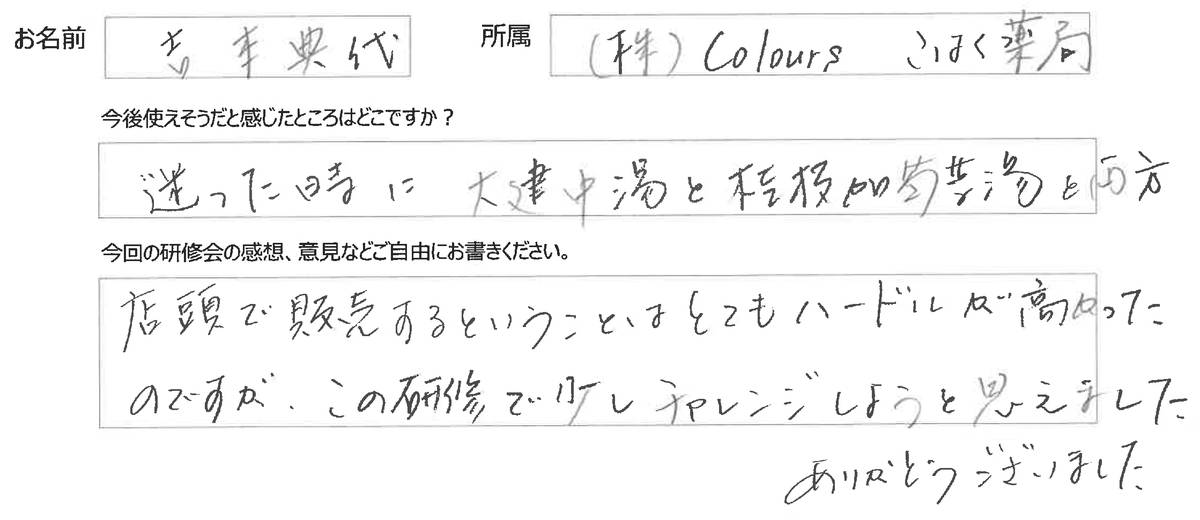 お名前 吉本典代 所属 (株) Colours こはく薬局
今後使えそうだと感じたところはどこですか?
迷った時に 大建中湯と桂枝加芍薬湯と両方
今回の研修会の感想、意見などご自由にお書きください。
店頭で販売するということはとてもハードルが高かった
のですが、この研修で少しチャレンジしようと思えました
ありがとうございました